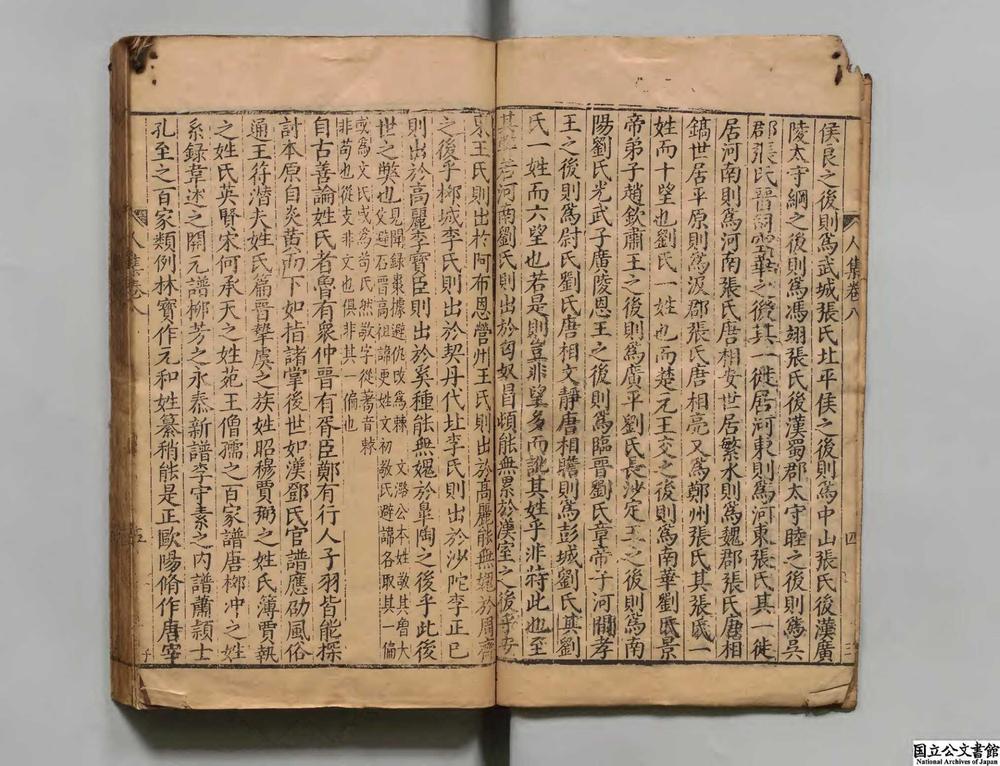 侯良之後則爲武城張氏北平侯之後則爲中山張氏後漢廣
陵太守綱之後則爲馮翊張氏後漢蜀郡太守睦之後則爲吳
郡張氏晉司空華之後其一徙居河東則爲河東張氏其一徙
居河南則爲河南張氏唐相安世居繁水則爲魏郡張氏唐相
鎬世居平原則爲汲郡張氏唐相亮又爲鄭州張氏其張氏一
姓而十望也劉氏一姓也而楚元王交之後則爲南華劉氏景
帝弟子趙欽肅王之後則爲廣平劉氏長沙定王之後則爲南
陽劉氏光武子廣陵恩王之後則爲臨晉劉氏章帝子河間孝
王之後則爲尉氏劉氏唐相文靜唐相瞻則爲彭城劉氏其劉
氏一姓而六望也若是則豈非望多而訛其姓乎非特此也至
其若河南劉氏則出於匈奴冒頓能無累於漢室之後乎安
東王氏則出於阿布思營州王氏則出於高麗能無媿於周
之後乎柳城李氏則出於契丹代北李氏則出於沙陀李正已
則出於高麗李寶臣則出於奚種能無媿於皐陶之後乎此後
世之弊也見聞錄棗據避仇改爲棘 文潞公本姓敬其曾大
父避石晉高祖諱更姓文初敬氏避諱各取其一偏
或爲文氏或爲苟氏然敬字從茍音棘
非苟也從攴非文也俱非其一偏也
自古善論姓氏者魯有衆仲晉有胥臣鄭有行人子羽皆能探
討本原自炎黃而下如指諸掌後世如漢鄧氏官譜應劭風俗
通王符潛夫姓氏篇晉摯虞之族姓昭穆賈弼之姓氏簿賈執
之姓氏英賢宋何承天之姓苑王僧孺之百家譜唐柳冲之姓
系錄韋述之開元譜柳芳之永泰新譜李守素之內譜蕭頴士
孔至之百家類例林寶作元和姓纂稍能是正歐陽脩作唐宰
人集卷八
四
三
人集卷八
五
国立公文書館
National Archives of Japan